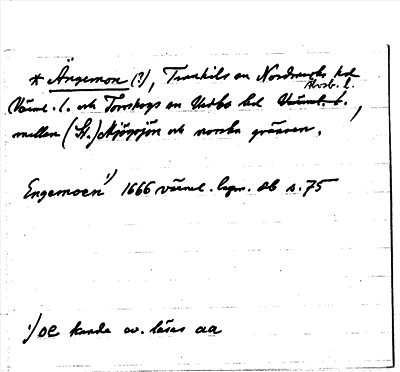 * Ängemon (?), Trankils sn Nordmarks hd
Älvsb. l.
Värml. l. och Torrskogs sn Vedbo hd Värml. l. ,
mellan (St.) och norska gränsen.
Engemoen ¹) 1666 värml. lagm. db s. 75
¹) oe kunde ev. läsas aa